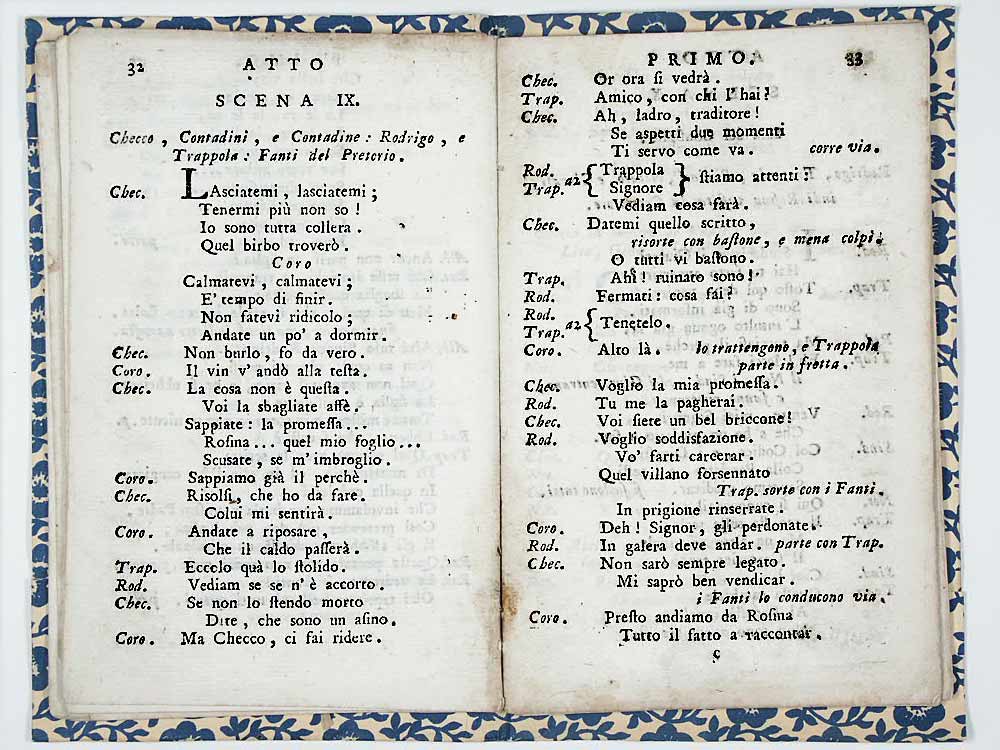 32 ATTO
SCENA IX.
Checco, Contadini, e Contadine: Rodrigo, e
Trappola: Fanti del Pretorio.
Chec. LAsciatemi, lasciatemi;
Tenermi più non so!
Io sono tutta collera.
Quel birbo troverò.
Coro
Calmatevi, calmatevi;
E' tempo di finir.
Non fatevi ridicolo;
Andate un po' a dormir.
Chec. Non burlo, fo da vero.
Coro. Il vin v' andò alla testa.
Chec. La cosa non è questa.
Voi la sbagliate affè.
Sappiate: la promessa...
Rosina... quel mio foglio...
Scusate, se m' imbroglio.
Coro. Sappiamo già il perchè.
Chec. Risolsi, che ho da fare.
Colui mi sentirà.
Coro. Andate a riposare,
Che il caldo passerà.
Trap. Eccolo quà lo stolido.
Rod. Vediam se se n' è accorto
Chec. Se non lo stendo morto
Dite, che sono un asino.
Coro. Ma Checco, ci fai ridere.
PRIMO. 33
Chec. Or ora si vedrà.
Trap. Amico, con chi l' hai?
Chec. Ah, ladro, traditore!
Se aspetti due momenti
Ti servo come va. corre via.
Rod. Trap. a2 { Trappola Signore } stiamo attenti:
Vediam cosa farà.
Chec. Datemi quello scritto,
risorte con bastone, e mena colpi.
O tutti vi bastono.
Trap. Ahi! ruinato sono!
Rod. Fermati: cosa fai?
Rod. Trap. a2 { Tenetelo.
Coro. Alto là. lo trattengono, e Trappola
parte in fretta.
Chec. Voglio la mia promessa.
Rod. Tu me la pagherai.
Chec. Voi siete un bel briccone!
Rod. Voglio soddisfazione.
Vo' farti carcerar.
Quel villano forsennato
Trap. sorte con i Fanti.
In prigione rinserrate.
Coro. Deh! Signor, gli perdonate.
Rod. In galera deve andar. parte con Trap.
Chec. Non sarò sempre legato.
Mi saprò ben vendicar.
i Fanti lo conducono via.
Coro. Presto andiamo da Rosina
Tutto il fatto a raccontar.
C